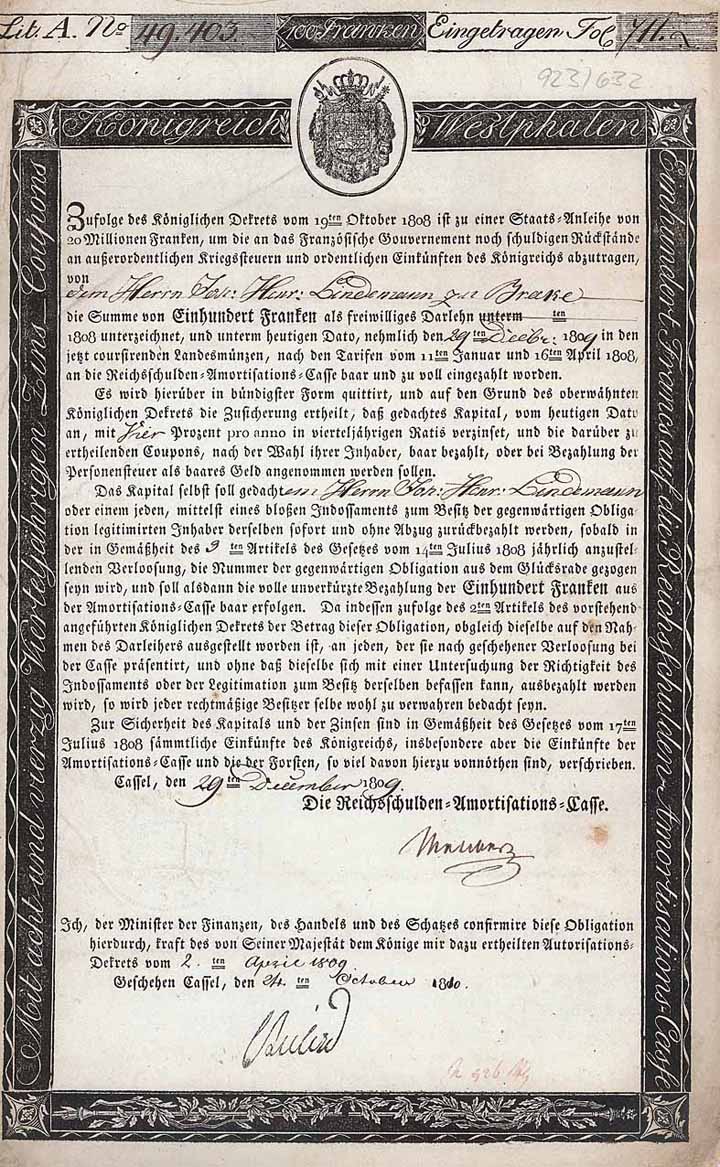 Lit. A. No 49.403. 100 Franken Eingetragen Fol. 711.
923/632
Königreich Westphalen
Mit acht und vierzig Vierteljährigen Zins Coupons
Einhundert Francs auf die Reichsschulden-Amortisations-Casse
Zufolge des Königlichen Dekrets vom 19ten Oktober 1808 ist zu einer Staats-Anleihe von
20 Millionen Franken, um die an das Französische Gouvernement noch schuldigen Rückstände
an außerordentlichen Kriegssteuern und ordentlichen Einkünften des Königreichs abzutragen,
von
dem Herrn Joh: Henr: Lindemann zu Brake
die Summe von Einhundert Franken als freiwilliges Darlehn unterm ten
1808 unterzeichnet, und unterm heutigen Dato, nehmlich den 29 ten Decbr: 1809 in den
jetzt coursirenden Landesmünzen, nach den Tarifen vom 11ten Januar und 16ten April 1808,
an die Reichsschulden-Amortisations-Casse baar und zu voll eingezahlt worden.
Es wird hierüber in bündigster Form quittirt, und auf den Grund des oberwähnten
Königlichen Dekrets die Zusicherung ertheilt, daß gedachtes Kapital, vom heutigen Dato
an, mit Vier Prozent pro anno in vierteljährigen Ratis verzinset, und die darüber zu
ertheilenden Coupons, nach der Wahl ihrer Inhaber, baar bezahlt, oder bei Bezahlung der
Personensteuer als baares Geld angenommen werden sollen.
Das Kapital selbst soll gedachtem Herrn Joh: Henr: Lindemann
oder einem jeden, mittelst eines bloßen Indossaments zum Besitz der gegenwärtigen Obliga
tion legitimirten Inhaber derselben sofort und ohne Abzug zurückbezahlt werden, sobald in
der in Gemäßheit des 9 ten Artikels des Gesetzes vom 14ten Julius 1808 jährlich anzustel-
lenden Verloosung, die Nummer der gegenwärtigen Obligation aus dem Glücksrade gezogen
seyn wird, und soll alsdann die volle unverkürzte Bezahlung der Einhundert Franken aus
der Amortisations-Casse baar erfolgen. Da indessen zufolge des 2ten Artikels des vorstehend
angeführten Königlichen Dekrets der Betrag dieser Obligation, obgleich dieselbe auf den Nah-
men des Darleihers ausgestellt worden ist, an jeden, der sie nach geschehener Verloosung bei
der Casse präsentirt, und ohne daß dieselbe sich mit einer Untersuchung der Richtigkeit des
Indossaments oder der Legitimation zum Besitz derselben befassen kann, ausbezahlt werden
wird, so wird jeder rechtmäßige Besitzer selbe wohl zu verwahren bedacht seyn.
Zur Sicherheit des Kapitals und der Zinsen sind in Gemäßheit des Gesetzes vom 17ten
Julius 1808 sämmtliche Einkünfte des Königreichs, insbesondere aber die Einkünfte der
Amortisations-Casse und die der Forsten, so viel davon hierzu vonnöthen sind, verschrieben.
Cassel, den 29 ten December 1809.
Die Reichsschulden-Amortisations-Casse.
Ich, der Minister der Finanzen, des Handels und des Schatzes confirmire diese Obligation
hierdurch, kraft des von Seiner Majestät dem Könige mir dazu ertheilten Autorisations-
Dekrets vom 2. ten April 1809
Geschehen Cassel, den 24. ten October 1810.